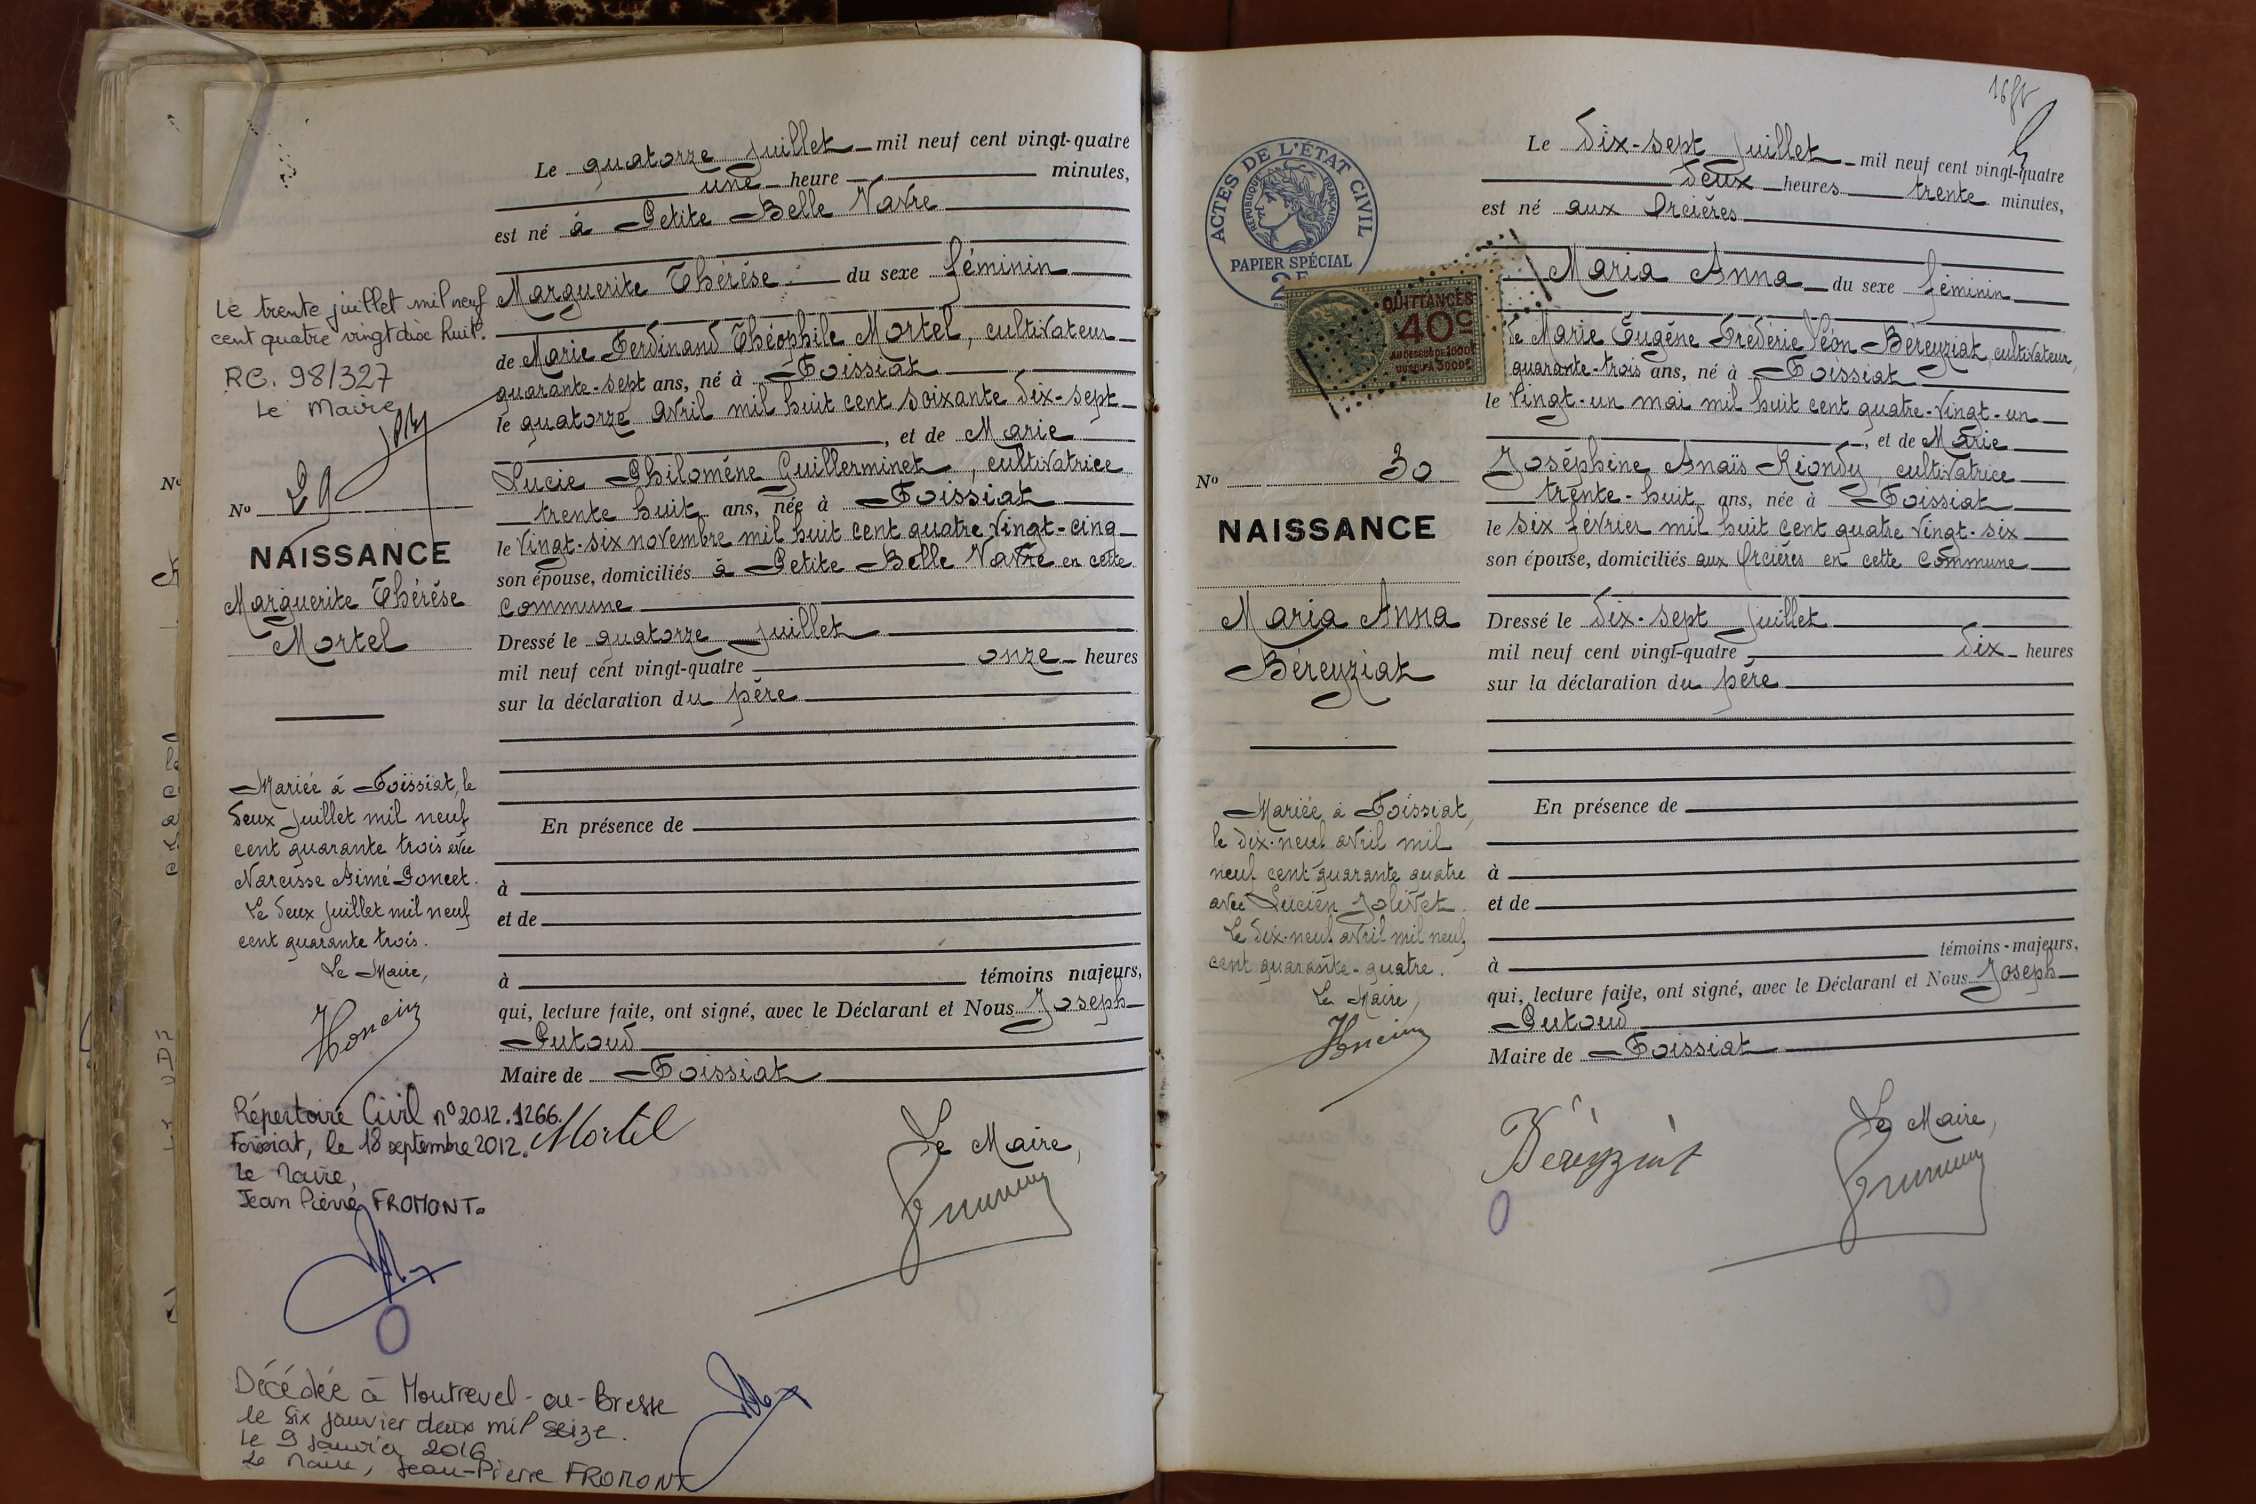 Le quatorze juillet mil neuf cent vingt-quatre
une heure minutes,
est né à Petite Belle Vavre
Marguerite Thérèse du sexe féminin
de Marie Ferdinand Théophile Mortel, cultivateur
quarante-sept ans, né à Foissiat
le quatorze avril mil huit cent soixante dix-sept
, et de Marie
Lucie Philomène Guillerminet, cultivatrice
trente huit ans, née à Foissiat
le vingt-six novembre mil huit cent quatre vingt-cinq
son épouse, domiciliés à Petite Belle Vavre en cette
commune
Dressé le quatorze juillet
mil neuf cent vingt-quatre onze heures
sur la déclaration du père
En présence de
à
et de
à témoins majeurs,
qui, lecture faite, ont signé, avec le Déclarant et Nous Joseph
Putoud
Maire de Foissiat
Mortel
Le Maire,
Le trente juillet mil neuf
cent quatre vingt dix huit.
RC. 98/327
Le Maire
No 29
NAISSANCE
Marguerite Thérèse
Mortel
Mariée à Foissiat, le
deux juillet mil neuf
cent quarante trois avec
Narcisse Aimé Poncet.
Le deux juillet mil neuf
cent quarante trois.
Le Maire,
Répertoire Civil n° 2012.1266.
Foissiat, le 18 septembre 2012.
Le Maire,
Jean Pierre FROMONT.
Décédée à Montrevel-en-Bresse
le six janvier deux mil seize.
Le 9 janvier 2016
Le Maire, Jean-Pierre FROMONT
ACTES DE L'ÉTAT CIVIL
RÉPUBLIQUE FRANÇAISE
PAPIER SPÉCIAL
2F
QUITTANCES
40c
AU DESSUS DE 1000f
JUSQU'À 3000f
Le dix-sept juillet mil neuf cent vingt-quatre
deux heures trente minutes,
est né aux Orcières
Maria Anna du sexe féminin
de Marie Eugène Frédéric Léon Béreyziat, cultivateur,
quarante-trois ans, né à Foissiat
le vingt-un mai mil huit cent quatre-vingt-un
, et de Marie
Joséphine Anaïs Riondy, cultivatrice
trente-huit ans, née à Foissiat
le six février mil huit cent quatre vingt-six
son épouse, domiciliés aux Orcières en cette commune
Dressé le dix-sept juillet
mil neuf cent vingt-quatre dix heures
sur la déclaration du père
En présence de
à
et de
à témoins-majeurs,
qui, lecture faite, ont signé, avec le Déclarant et Nous Joseph
Putoud
Maire de Foissiat
Béreyziat
Le Maire,
No 30
NAISSANCE
Maria Anna
Béreyziat
Mariée à Foissiat,
le dix-neuf avril mil
neuf cent quarante quatre
avec Lucien Jolivet.
Le dix-neuf avril mil neuf
cent quarante-quatre.
Le Maire,